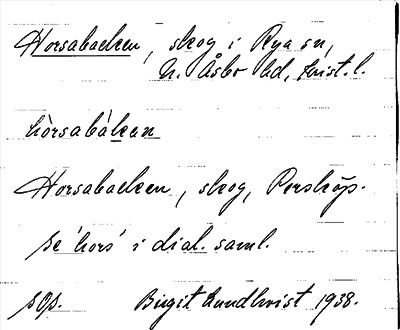 Horsabacken, skog i Rya sn,
N. Åsbo hd, Krist. l.
hòrsabákean
Horsabacken, skog, Perstorp.
se 'hors' i dial. saml.
sop. Birgit Lundkvist 1938.